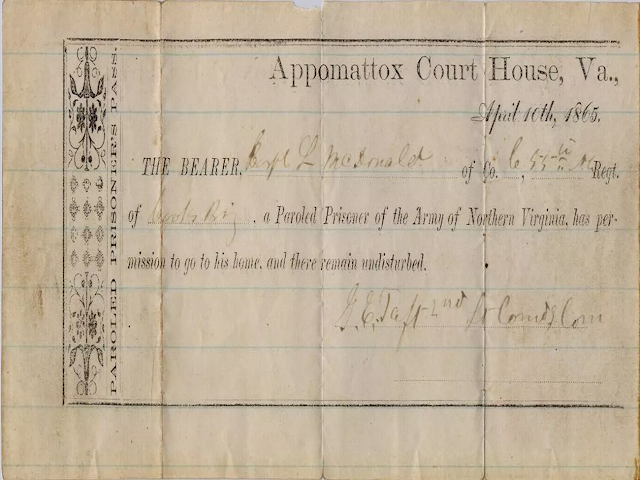 PAROLED PRISONER'S PASS.
Appomattox Court House, Va.,
April 10th, 1865.
THE BEARER, Corpl L McDonald of Co. C, 55th N Regt.
of , a Paroled Prisoner of the Army of Northern Virginia, has per-
mission to go to his home, and there remain undisturbed.
G. E. Taft 2nd Lt Comdg Com